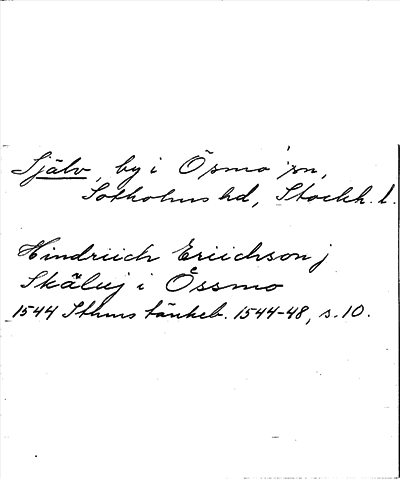 Själv, by i Ösmo sn,
Sotholms hd, Stockh. l.
Hindriich Eriichson j
Skäluj i Össmo
1544 Sthms tänkeb. 1544-48, s. 10.